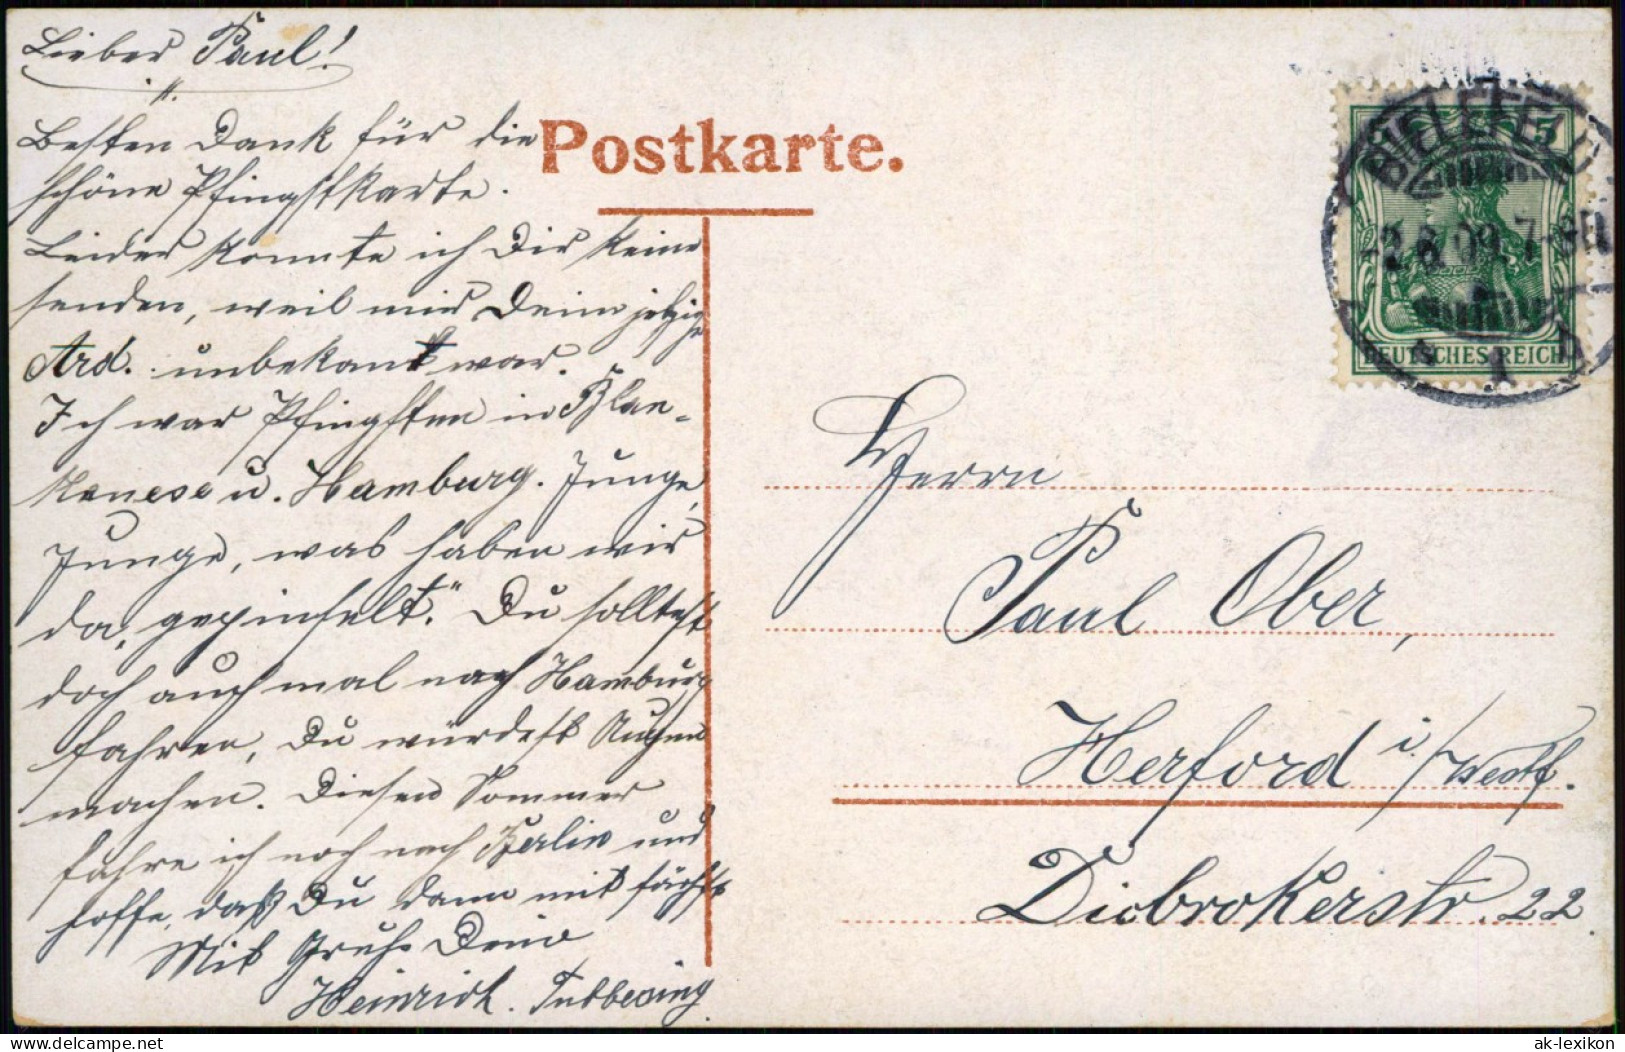 Lieber Paul!
Besten Dank für die
schöne Pfingstkarte.
Leider konnte ich Dir keine
senden, weil mir Deine jetzige
Ard. unbekannt war.
Ich war Pfingsten in Blan-
kenese u. Hamburg. Junge,
Junge, was haben wir
da „gepinselt." Du solltest
doch auch mal nach Hamburg
fahren, Du würdest Augen
machen. Diesen Sommer
fahre ich noch nach Berlin und
hoffe, daß Du dann mit fährst
Mit Gruß Dein
Heinrich.
Postkarte.
BIELEFELD
2.6.09. 7-8N
5
DEUTSCHES REICH
Herrn
Paul Ober,
Herford i./Westf.
Diebrokerstr. 22.
ak-lexikon.de
ak-lexikon